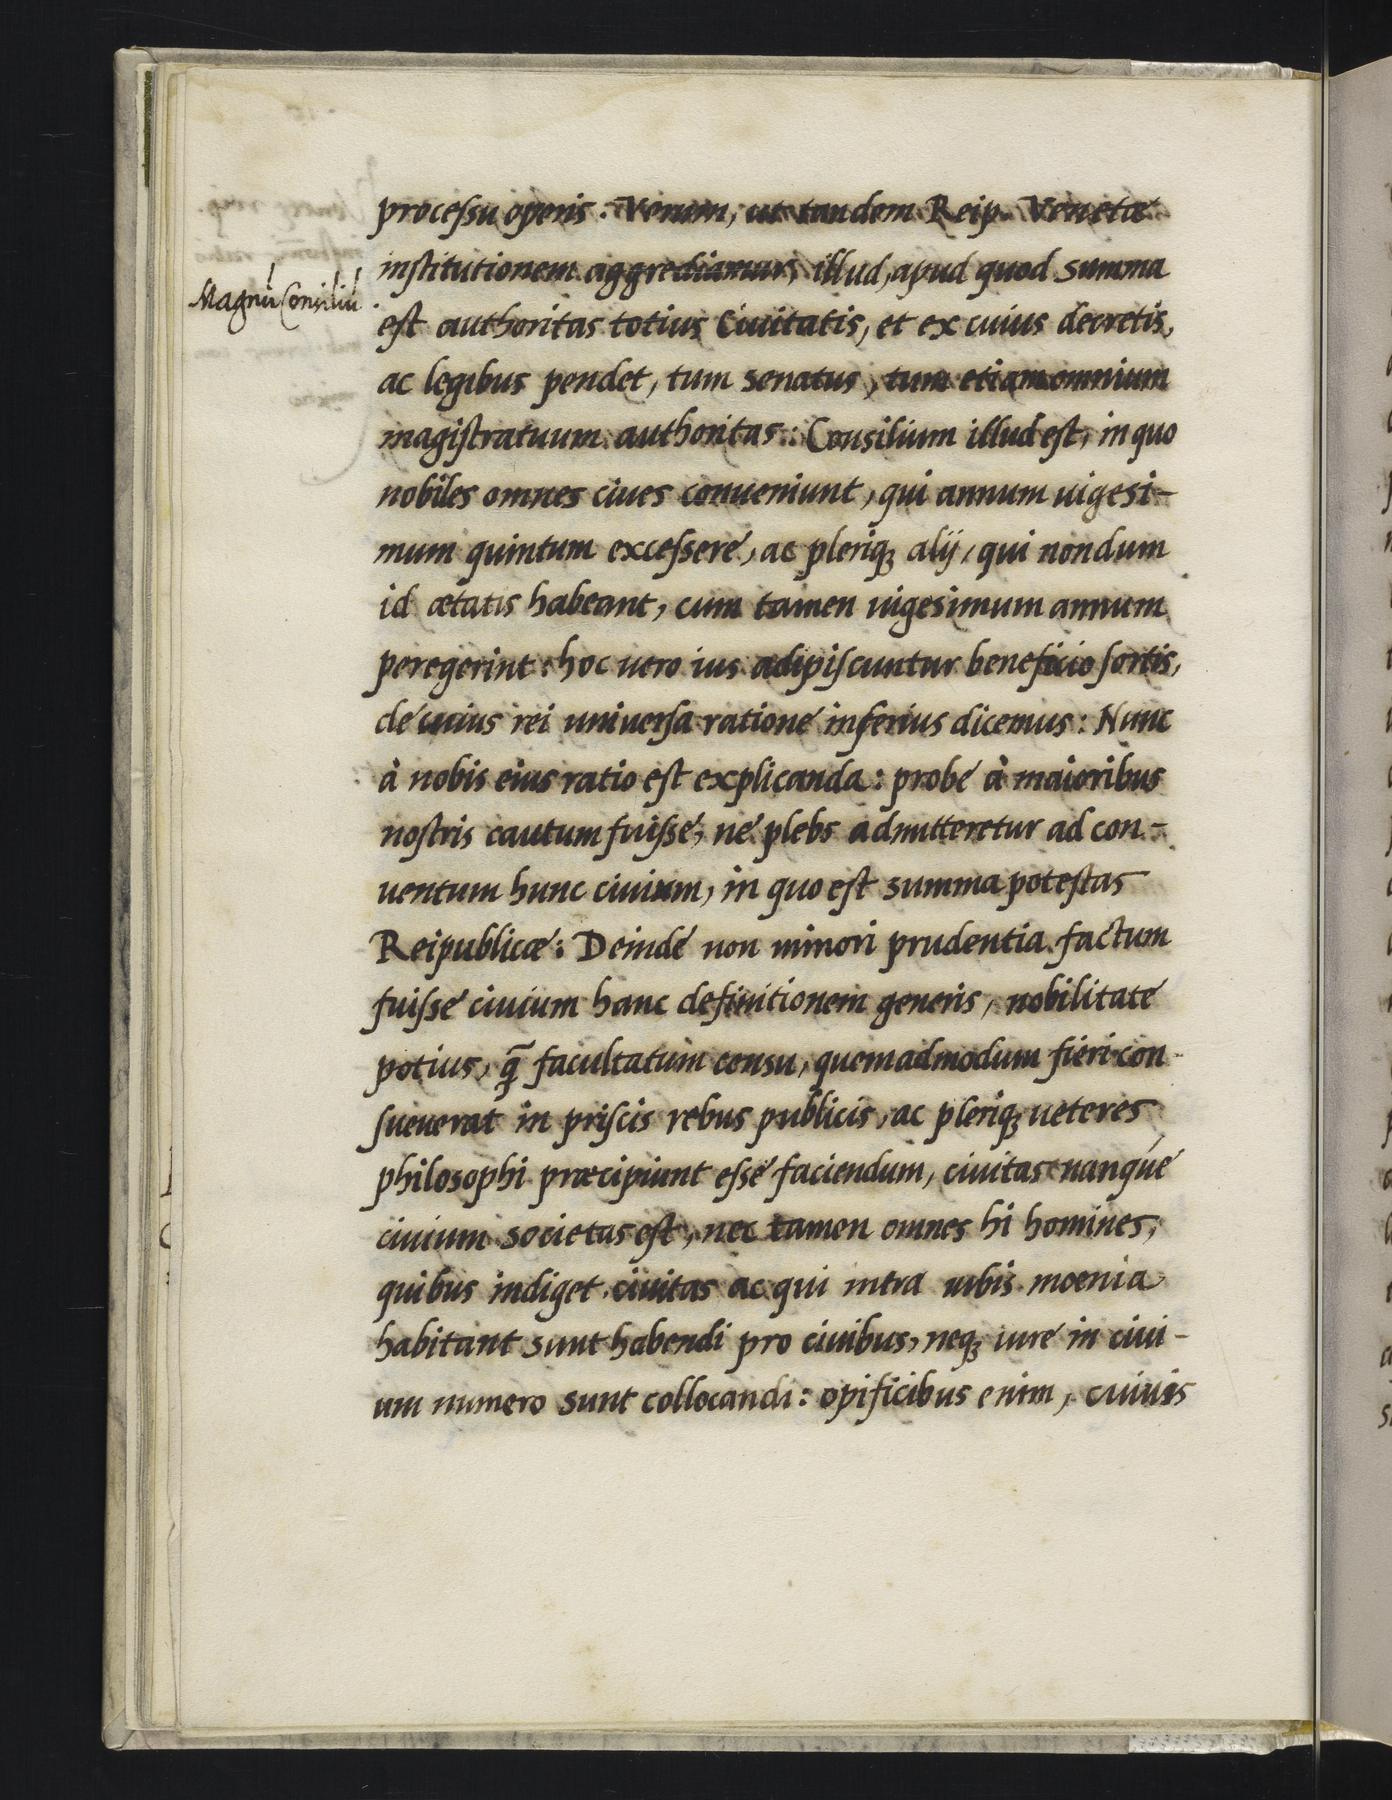 processu operis. Verum, ut tandem Reip. Venetæ
institutionem aggrediamur, illud, apud quod summa
Magnũ Consiliũ
est authoritas totius Ciuitatis, et ex cuius decretis,
ac legibus pendet, tum senatus, tum etiam omnium
magistratuum authoritas: Consilium illud est, in quo
nobiles omnes ciues conueniunt, qui annum uigesi-
mum quintum excessere, ac pleriq; alij, qui nondum
id ætatis habeant, cum tamen uigesimum annum
peregerint: hoc uero ius adipiscuntur beneficio sortis,
de cuius rei universa ratione inferius dicemus: Nunc
à nobis eius ratio est explicanda: probe à maioribus
nostris cautum fuisse, ne plebs admitteretur ad con-
uentum hunc ciuium, in quo est summa potestas
Reipublicæ: Deinde non minori prudentia factum
fuisse ciuium hanc definitionem generis, nobilitate
potius, q̃ facultatum censu, quemadmodum fieri con-
sueuerat in priscis rebus publicis, ac pleriq; ueteres
philosophi præcipiunt esse faciendum, ciuitas nanque
ciuium societas est, nec tamen omnes hi homines,
quibus indiget ciuitas ac qui intra urbis moenia
habitant sunt habendi pro ciuibus, neq; iure in ciui-
um numero sunt collocandi: opificibus enim, cuiuis